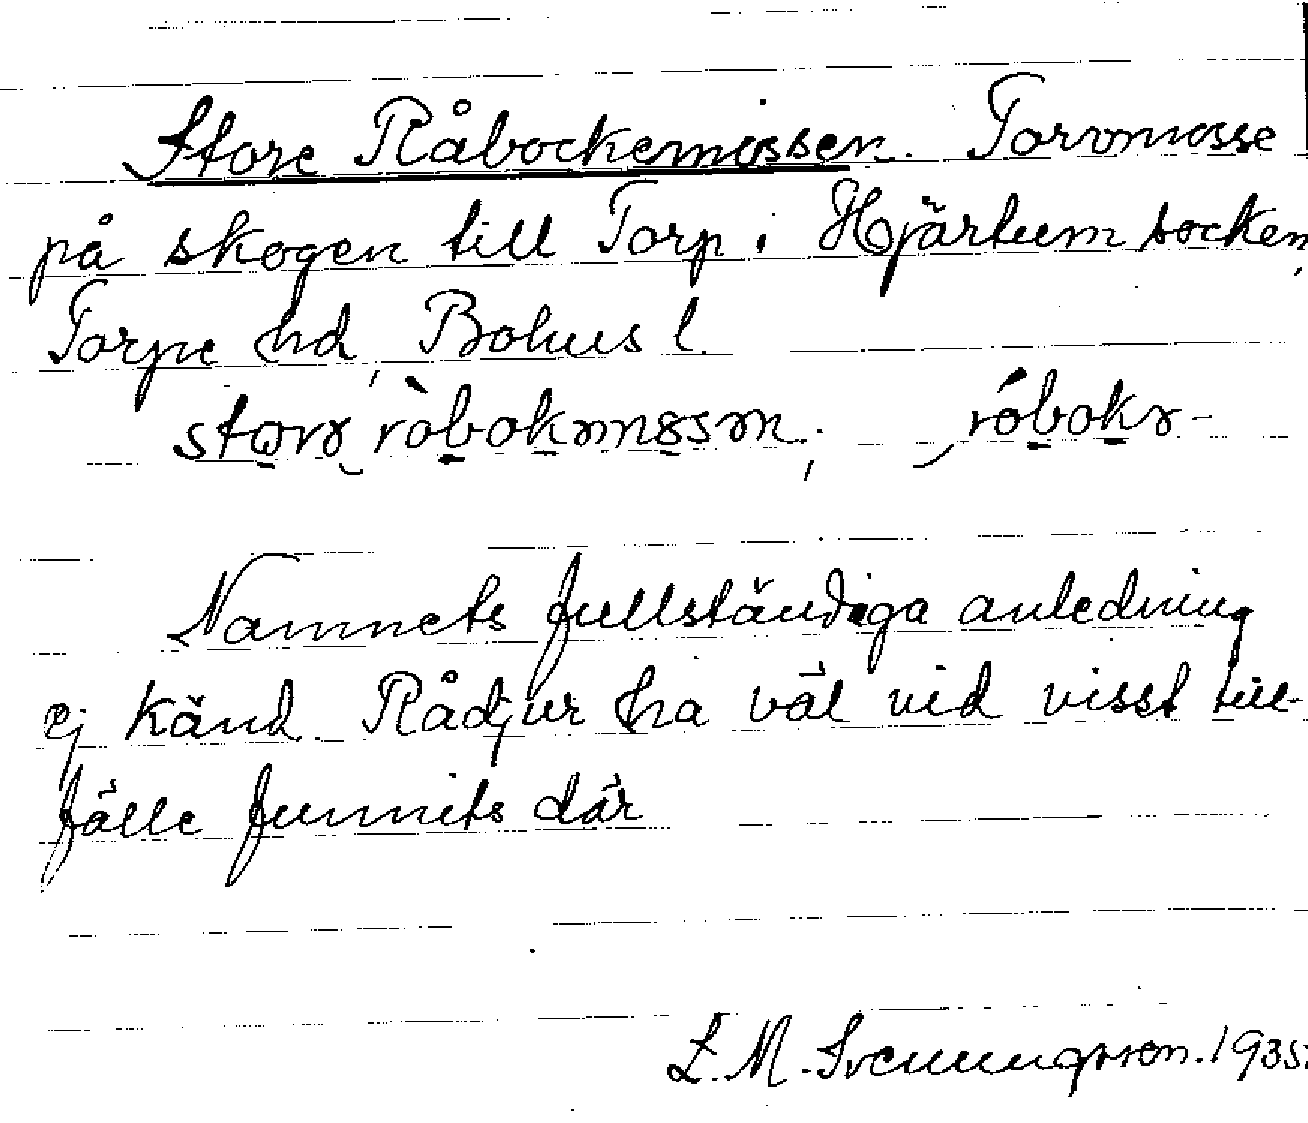 Store Råbockemossen. Torvmosse
på skogen till Torp i Hjärtum socken,
Torpe hd, Bohus l.
Namnets fullständiga anledning
ej känd. Rådjur ha väl vid visst till-
fälle funnits där
L. M. Svenungsson. 1935.